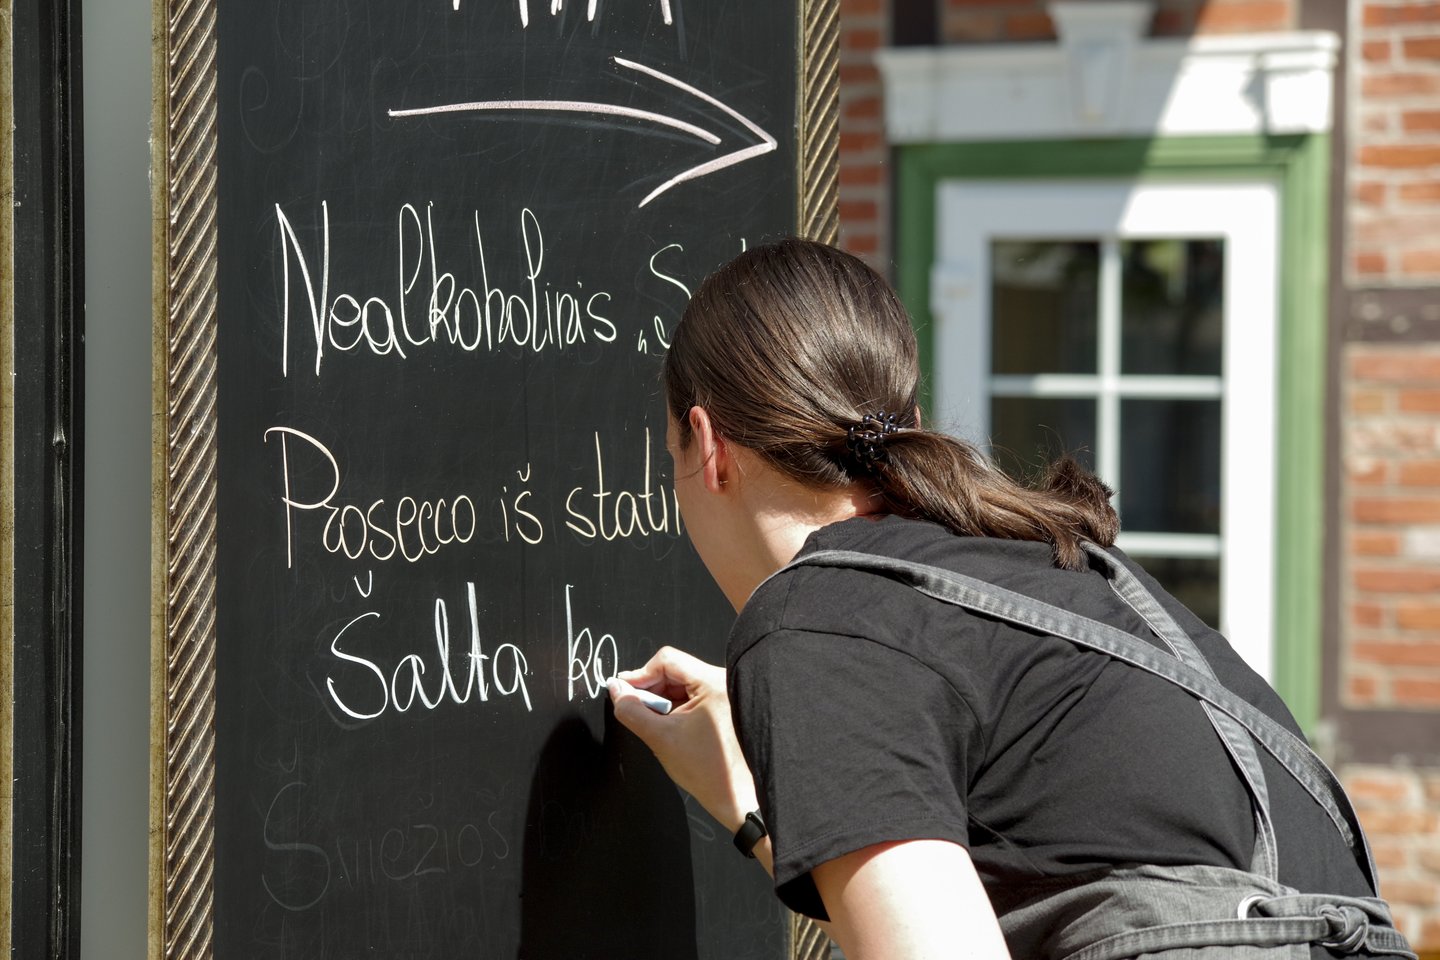 Nealkoholinis „S
Prosecco iš statin
Šalta ko
Šviežios